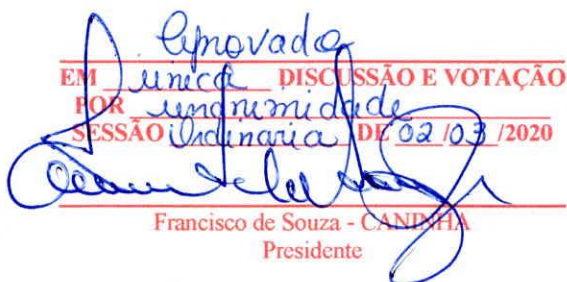 Aprovado
EM única DISCUSSÃO E VOTAÇÃO
POR unanimidade
SESSÃO Ordinaria DE 02/03/2020
Francisco de Souza - CANINHA
Presidente